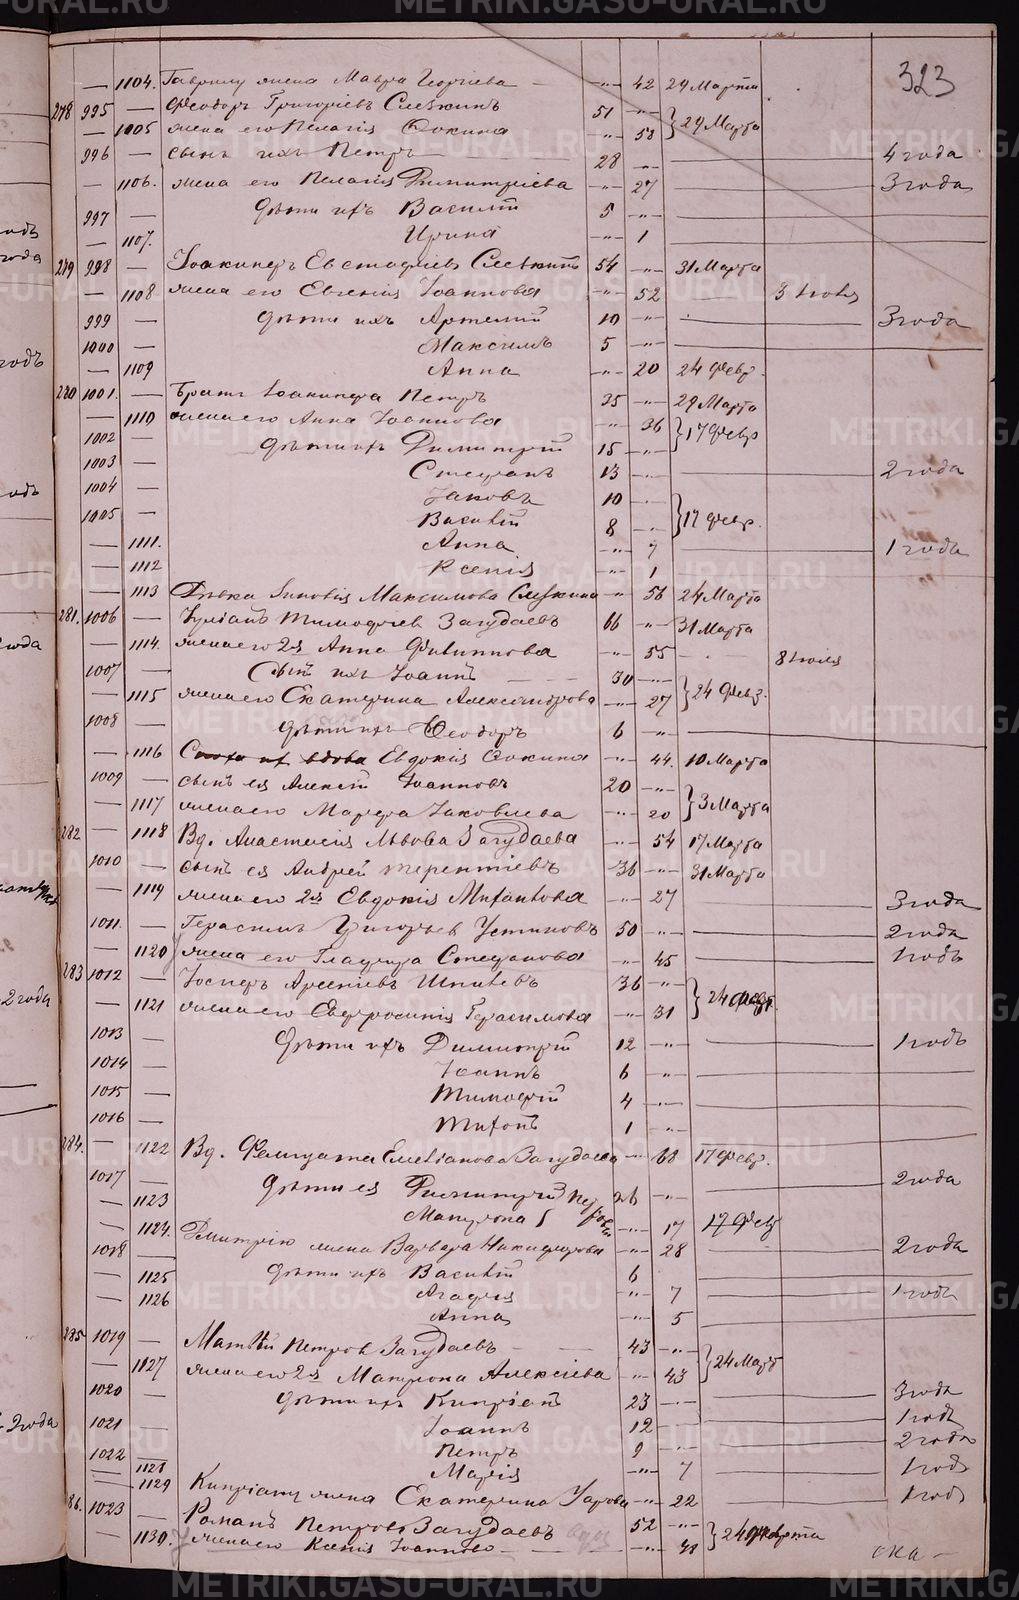 323
— 1104. Гаврилу жена Мавра Георгіева — „ 42 29 Марта
278 995 — Ѳеодоръ Григоріевъ Слезкинъ 51 „
— 1005 жена его Пелагія Ѳокина „ 53 } 29 Марта
996 — сынъ ихъ Петръ 28 „ 4 года
— 1106. жена его Пелагія Димитріева „ 27 3 года
997 — дѣти ихъ Василій 5 „
— 1107. Ирина „ 1
279 998 — Іоакинфъ Евстафіевъ Слезкинъ 54 „ 31 Марта
— 1108 жена его Евгенія Іоаннова „ 52
999 — дѣти ихъ Артемій 10 „ 3 года
1000 — Максимъ 5 „
— 1109 Анна „ 20 24 Февр.
280 1001. — Братъ Іоакинфа Петръ 35 „ 29 Марта
— 1110 жена его Анна Іоаннова „ 36 } 17 Февр
1002 — дѣти ихъ Димитрій 15 „
1003 — Стефанъ 13 „ 2 года
1004 — Іаковъ 10 „
1005 — Василій 8 „ } 17 февр.
— 1111. Анна „ 7 1 года
— 1112 Ксенія „ 1
— 1113 Дѣвка Зиновія Максимова Слезкина „ 56 24 Марта
281. 1006 — Іуліанъ Тимофеевъ Загудаевъ 66 „ 31 Марта
— 1114. жена его 2я Анна Филиппова „ 55 8 Іюля
1007 — Сынъ ихъ Іоаннъ 30 „
— 1115 жена его Екатерина Александрова „ 27 } 24 Февр.
1008 — дѣти ихъ Ѳеодоръ 6 „
— 1116 Евдокія Ѳокина „ 44. 10 Марта
1009 — сынъ ея Алексій Іоанновъ 20 „
— 1117 жена его Марфа Іаковлева „ 20 } 3 Марта
282 — 1118 Вд. Анастасія Львова Загудаева „ 54 17 Марта
1010 — сынъ ея Андрей Терентіевъ 36 „ 31 Марта
— 1119 жена его 2я Евдокія Михаилова „ 27 3 года
1011. — Герасимъ Григорьев Устиновъ 50 „ 2 года
— 1120 жена его Гликерія Стефанова „ 45 1 годъ
283 1012 — Іосифъ Арсеніевъ 36 „
— 1121 жена его Евфросинія Герасимова „ 31 } 24 февр.
1013 — дѣти ихъ Димитрій 12 „ 1 годъ
1014 — Іоаннъ 6 „
1015 — Тимофей 4 „
1016 — Тихонъ 1 „
284. — 1122 Вд. Емеліанова Загудаева „ 68 17 Февр.
1017 — дѣти ея Димитрій 26 „ 2 года
— 1123 Матрона „ 17 17 Февр
— 1124. Дмитрію жена Варвара Никифорова „ 28 2 года
1018 — дѣти ихъ Василій 6
— 1125 Агафія „ 7 1 года
— 1126 Анна „ 5
285 1019 — Матѳей Петров Загудаевъ 43 „
— 1127 жена его 2я Матрона Алексіева „ 43 } 24 Март
1020 — дѣти ихъ Кипріанъ 23 „ 3 года
1021 — Іоаннъ 12 1 годъ
1022 — Петръ 9 „ 2 года
— 1128 Марія „ 7 1 годъ
— 1129 Кипріану жена Екатерина „ 22 1 годъ
86. 1023 — Романъ Петровъ Загудаевъ 52 „
— 1130. жена его Ксенія Іоаннова „ 41 } 24 Марта